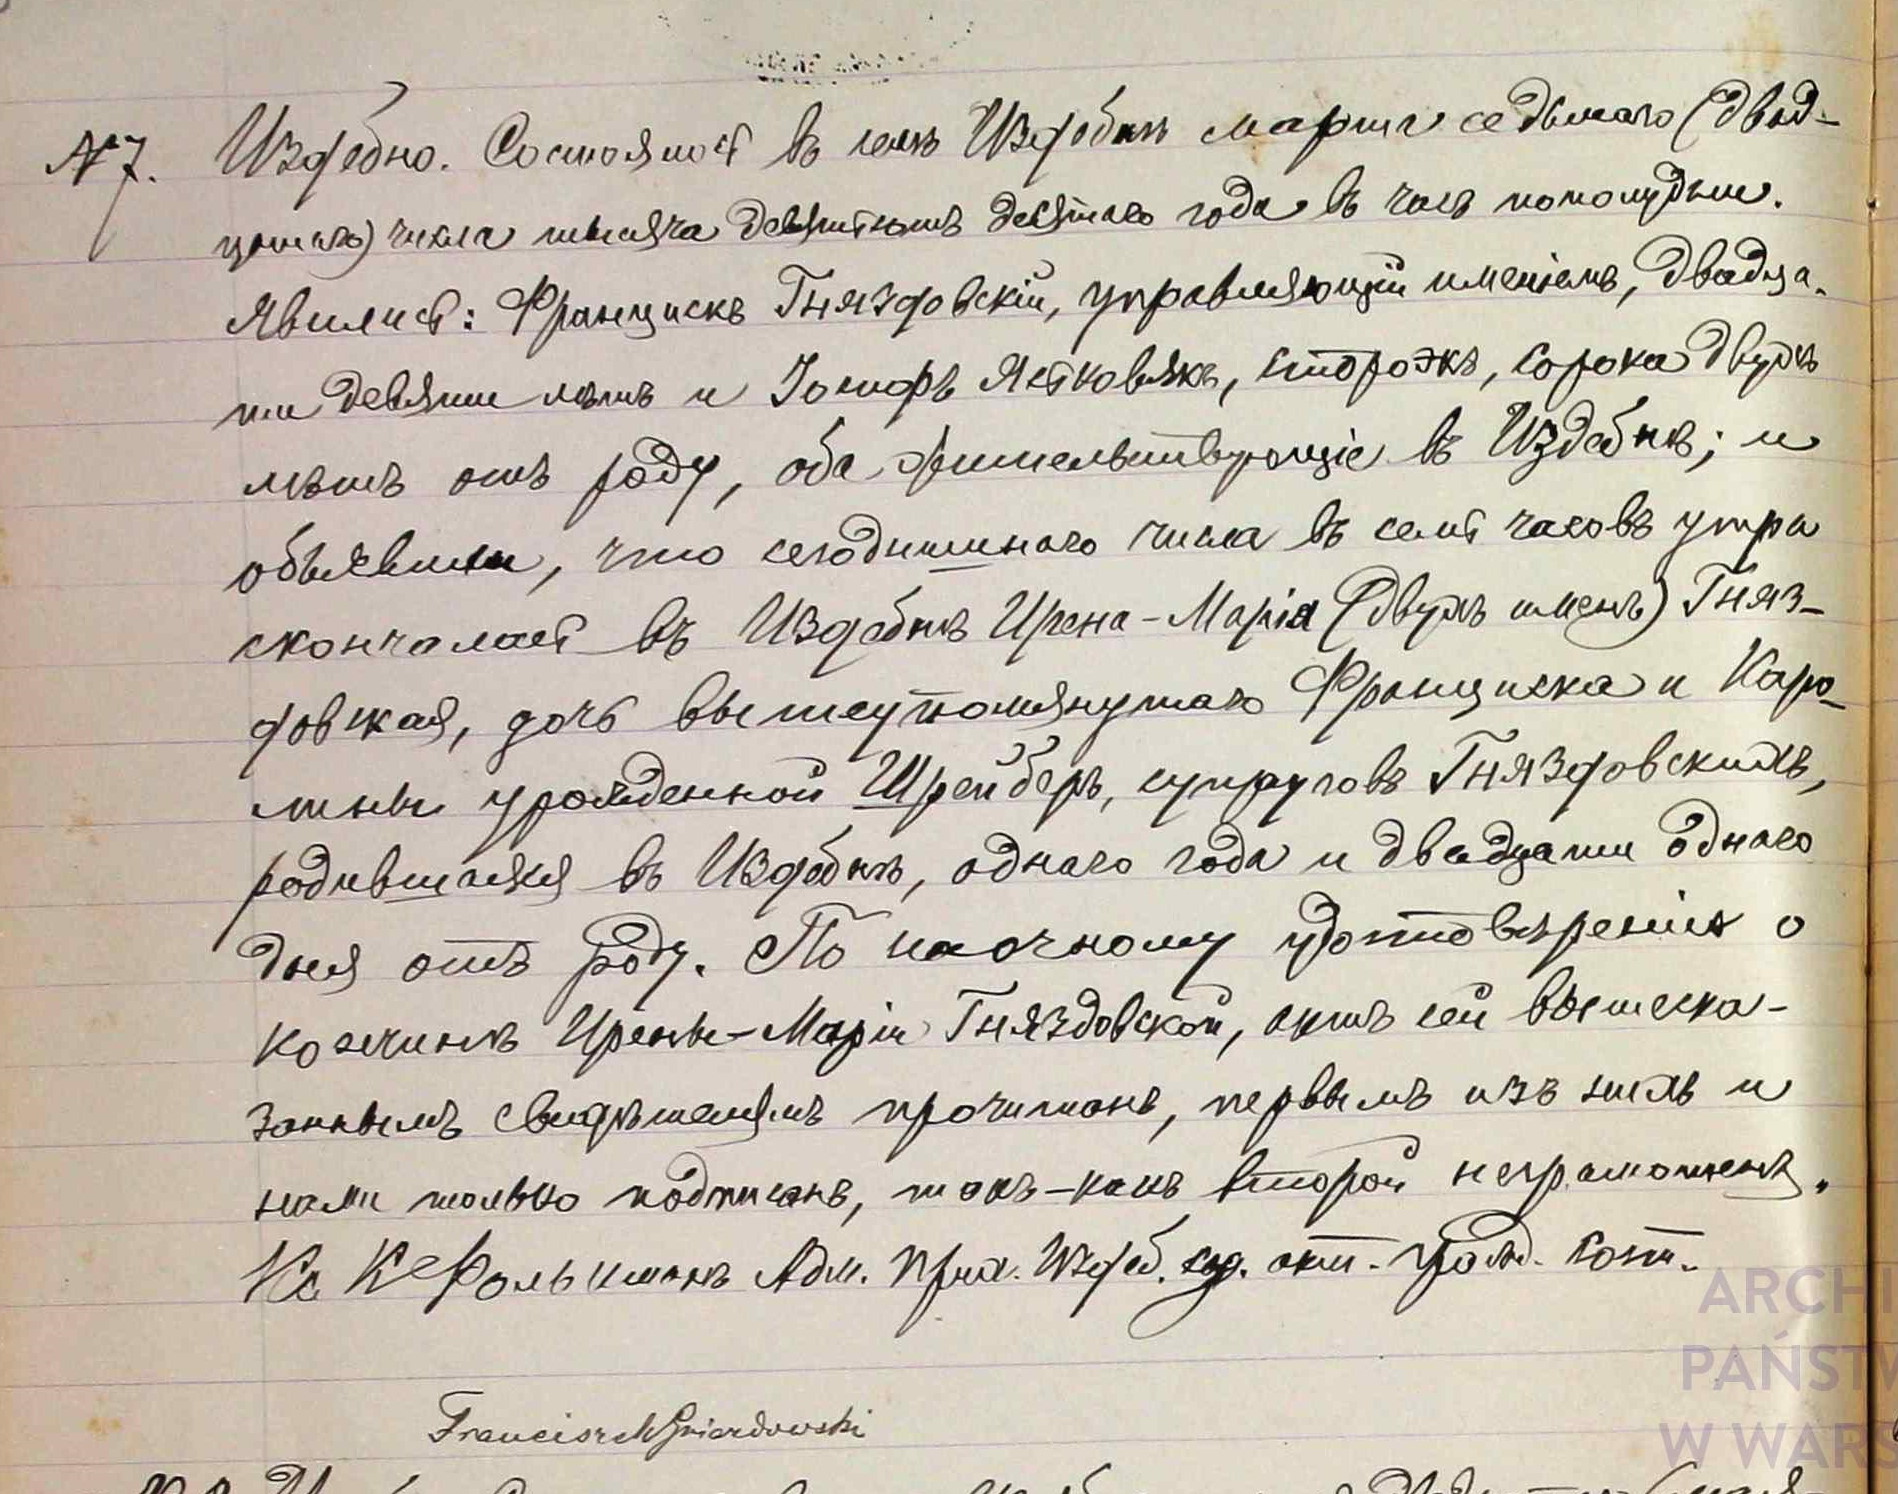 №7. Издебно. Состоялось въ селѣ Издебнѣ марта седьмаго (двад-
цатаго) числа тысяча девятьсотъ десятаго года въ часъ пополудни.
Явились: Францискъ Гняздовскій, управляющій имѣніемъ, двадца-
ти девяти лѣтъ и Іосифъ Ястковякъ, сторожъ, сорока двухъ
лѣтъ отъ роду, оба жительствующіе въ Издебнѣ; и
объявили, что сегоднишнаго числа въ семь часовъ утра
скончалась въ Издебнѣ Ирена-Марія (двухъ именъ) Гняз-
довская, дочь вышеупомянутаго Франциска и Каро-
лины урожденной Шрейберъ, супруговъ Гняздовскихъ,
родившаяся въ Издебнѣ, однаго года и двадцати однаго
дня отъ роду. По наочному удостовѣренію о
кончинѣ Ирены-Маріи Гняздовской, актъ сей вышеска-
заннымъ свидѣтелямъ прочитанъ, первымъ изъ нихъ и
нами только подписанъ, такъ-какъ второй неграмотенъ.
Кс К Фольктманъ Адм. Прих. Издеб. сод. акт. гражд. сост.
Franciszek Gniazdowski
ARCHI
PAŃSTW
W WARS